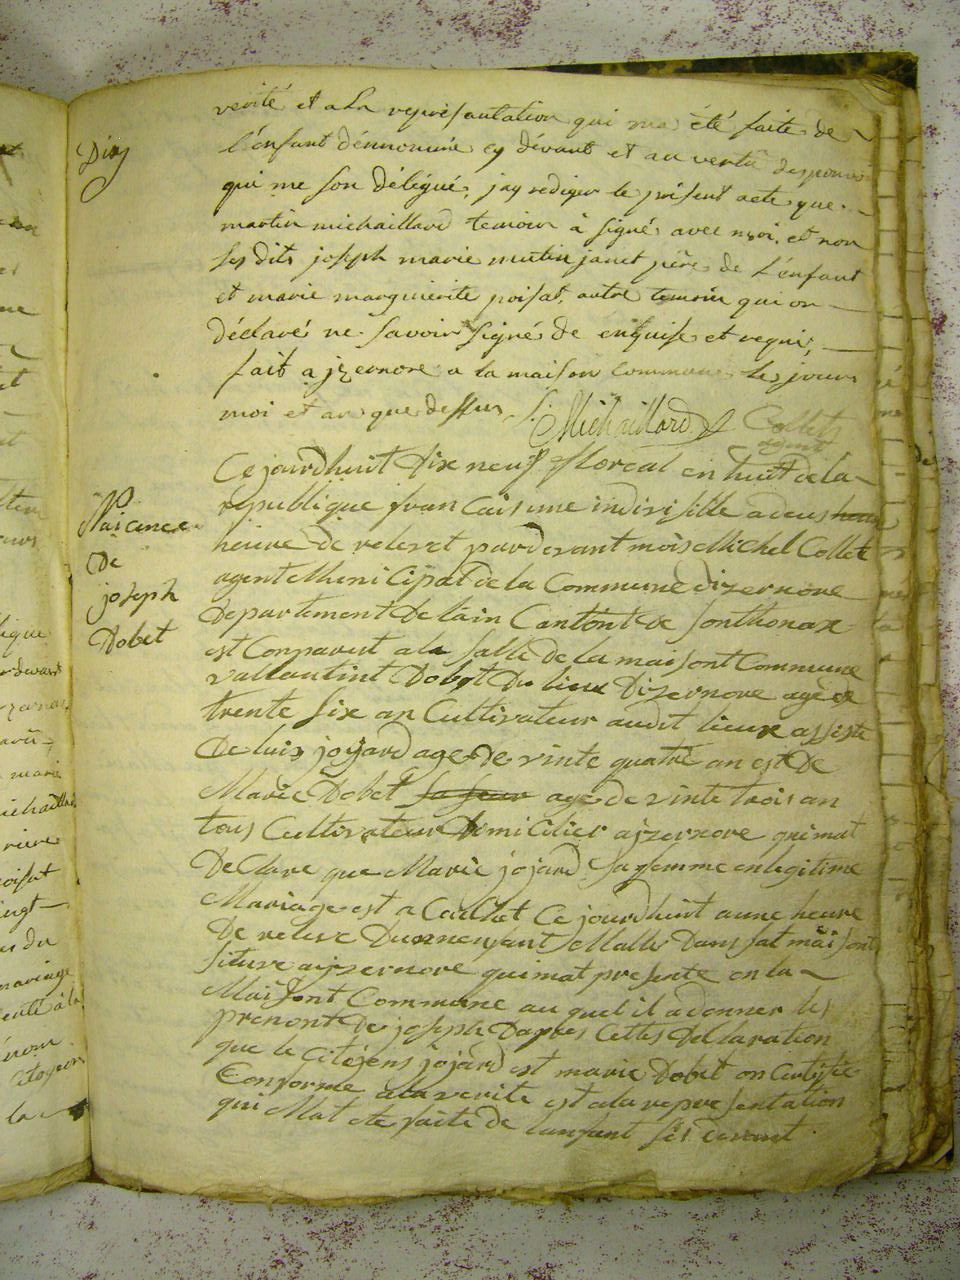 Dix
verité et a La representation qui ma été faite de
l'enfant dénnomme cy dévant et au vertu des pouvoi
qui me son délégué, jay rediger le présent acte que
martin michaillard temoin à signé avec moi, et non
les dits joseph marie mutin janet père de L'enfant
et marie marguerite poisat, autre temoin qui on
déclaré ne savoir signé de enquise et requi,
fait a jzernore a la maison commune les jours
moi et an que dessus
Michaillard Collet
agent
Naicance
De
joseph
Dobet
Ce jourdhuit dix neuf floreal en huit de la
republique francaise une indivisible a deus
heure de relevet pardevant mois Michel Collet
agent Municipal de la Commune dizernore
Departement De lain Cantont de Sonthonax
est Conparut a la Salle De la maisont Commune
vallantint Dobet Du lieux Dizernore age de
trente Six an Cultivateur audit lieux assiste
De luis jojard age de vinte quatre an est De
Marie Dobet sa seur age de vinte trois an
tous Cultivateur Domicilier ajzernore qui mat
De Clare que Marie jojard sa femme en legitime
Mariage est a Couchet Ce jourdhuit a une heure
De releve Dunnenfant Malle Dans sat maisont
siture aizernore qui mat presente en la
Maisont Commune au quel il a donner les
prenont De joseph Dapres Cettes Declaration
que le Citoyens jojard est marie Dobet on Certifie
Conforme a la verite est a la representation
qui Mat ete faite De lanfant